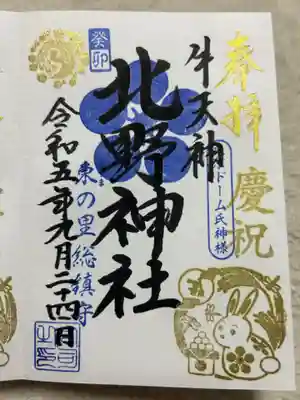 奉拝
慶祝
牛天神
ドーム氏神様
癸卯
北野神社
東の里総鎮守
令和五年九月二十四日